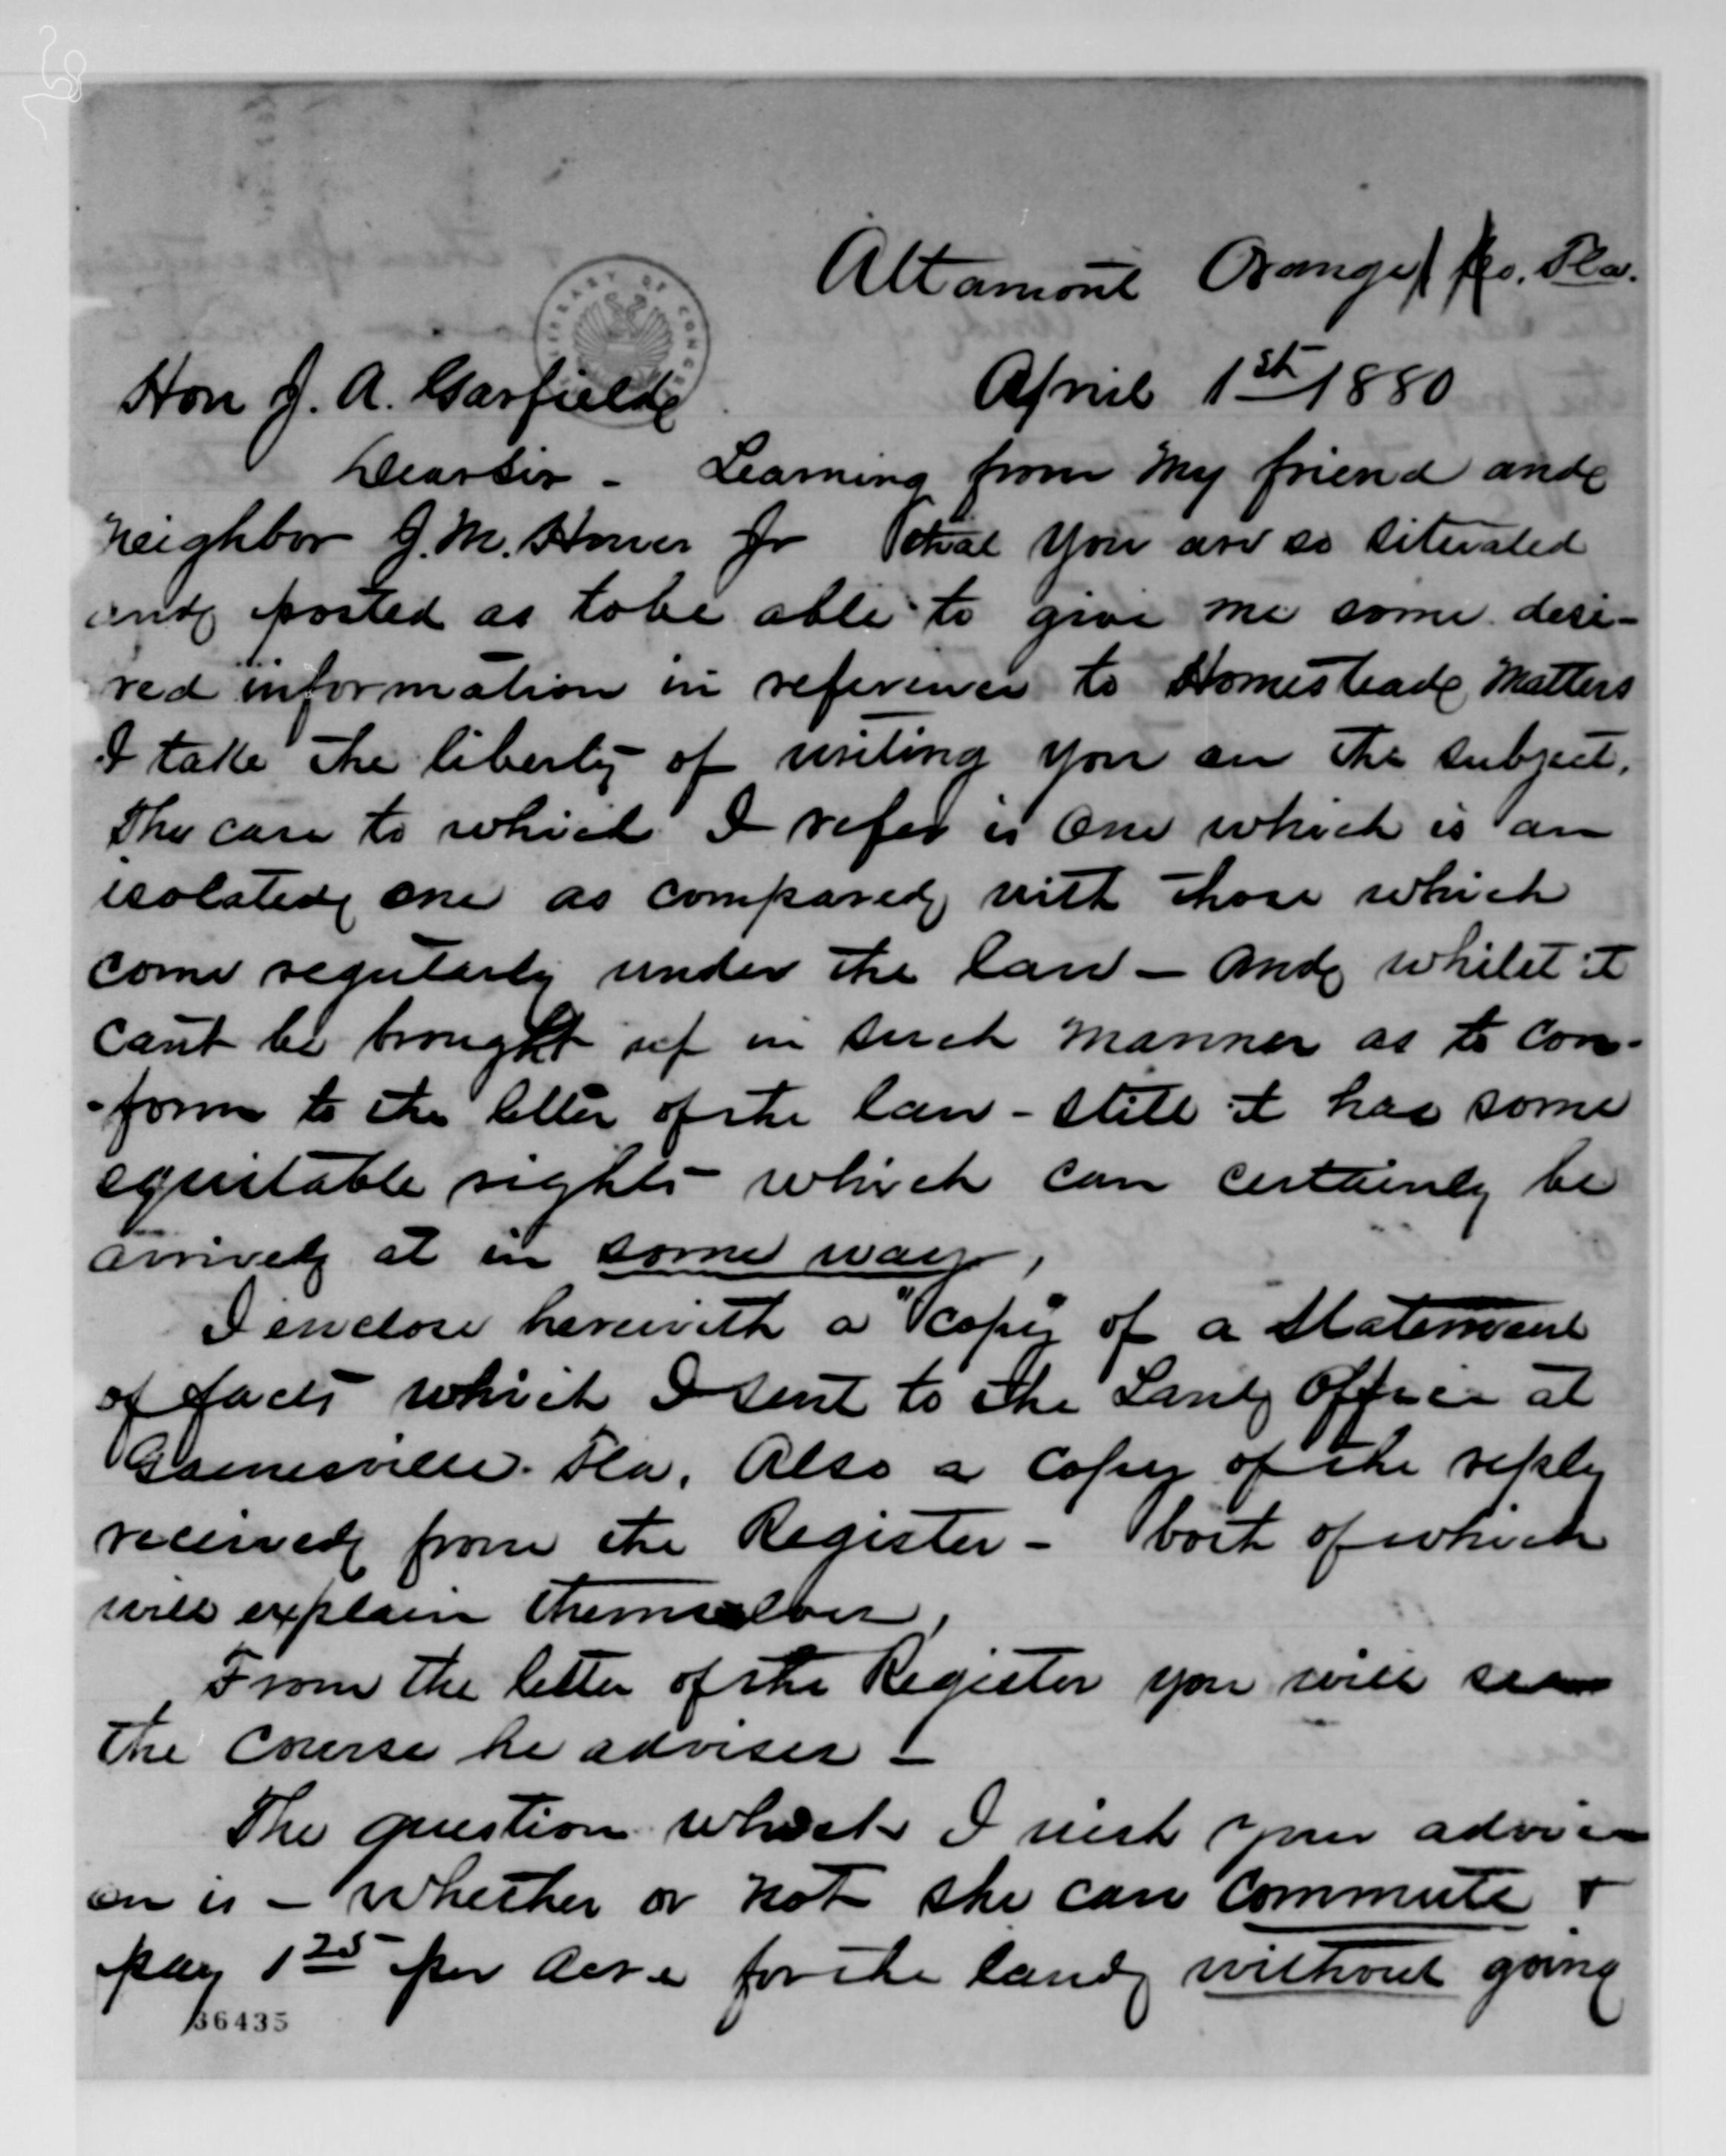 Altamont Orange Co. Fla.
April 1st 1880
Hon J. A. Garfield
Dear Sir - Learning from my friend and
neighbor J. M. Jr that you are so situated
and posted as to be able to give me some desi-
red information in reference to Homestead Matters
I take the liberty of writing you on the subject.
The case to which I refer is one which is an
isolated one as compared with those which
come regularly under the law - and whilst it
cant be brought up in such manner as to con-
-form to the letter of the law - still it has some
equitable rights which can certainly be
arrived at in some way,
I enclose herewith a "copy" of a Statement
of facts which I sent to the Land Office at
Gainesville. Fla. Also a copy of the reply
received from the Register - both of which
will explain themselves,
From the letter of the Register you will see
the course he advises -
The question which I wish your advice
on is - whether or not she can commute &
pay 1 25 per acre for the land without going
36435
LIBRARY OF CONGRESS